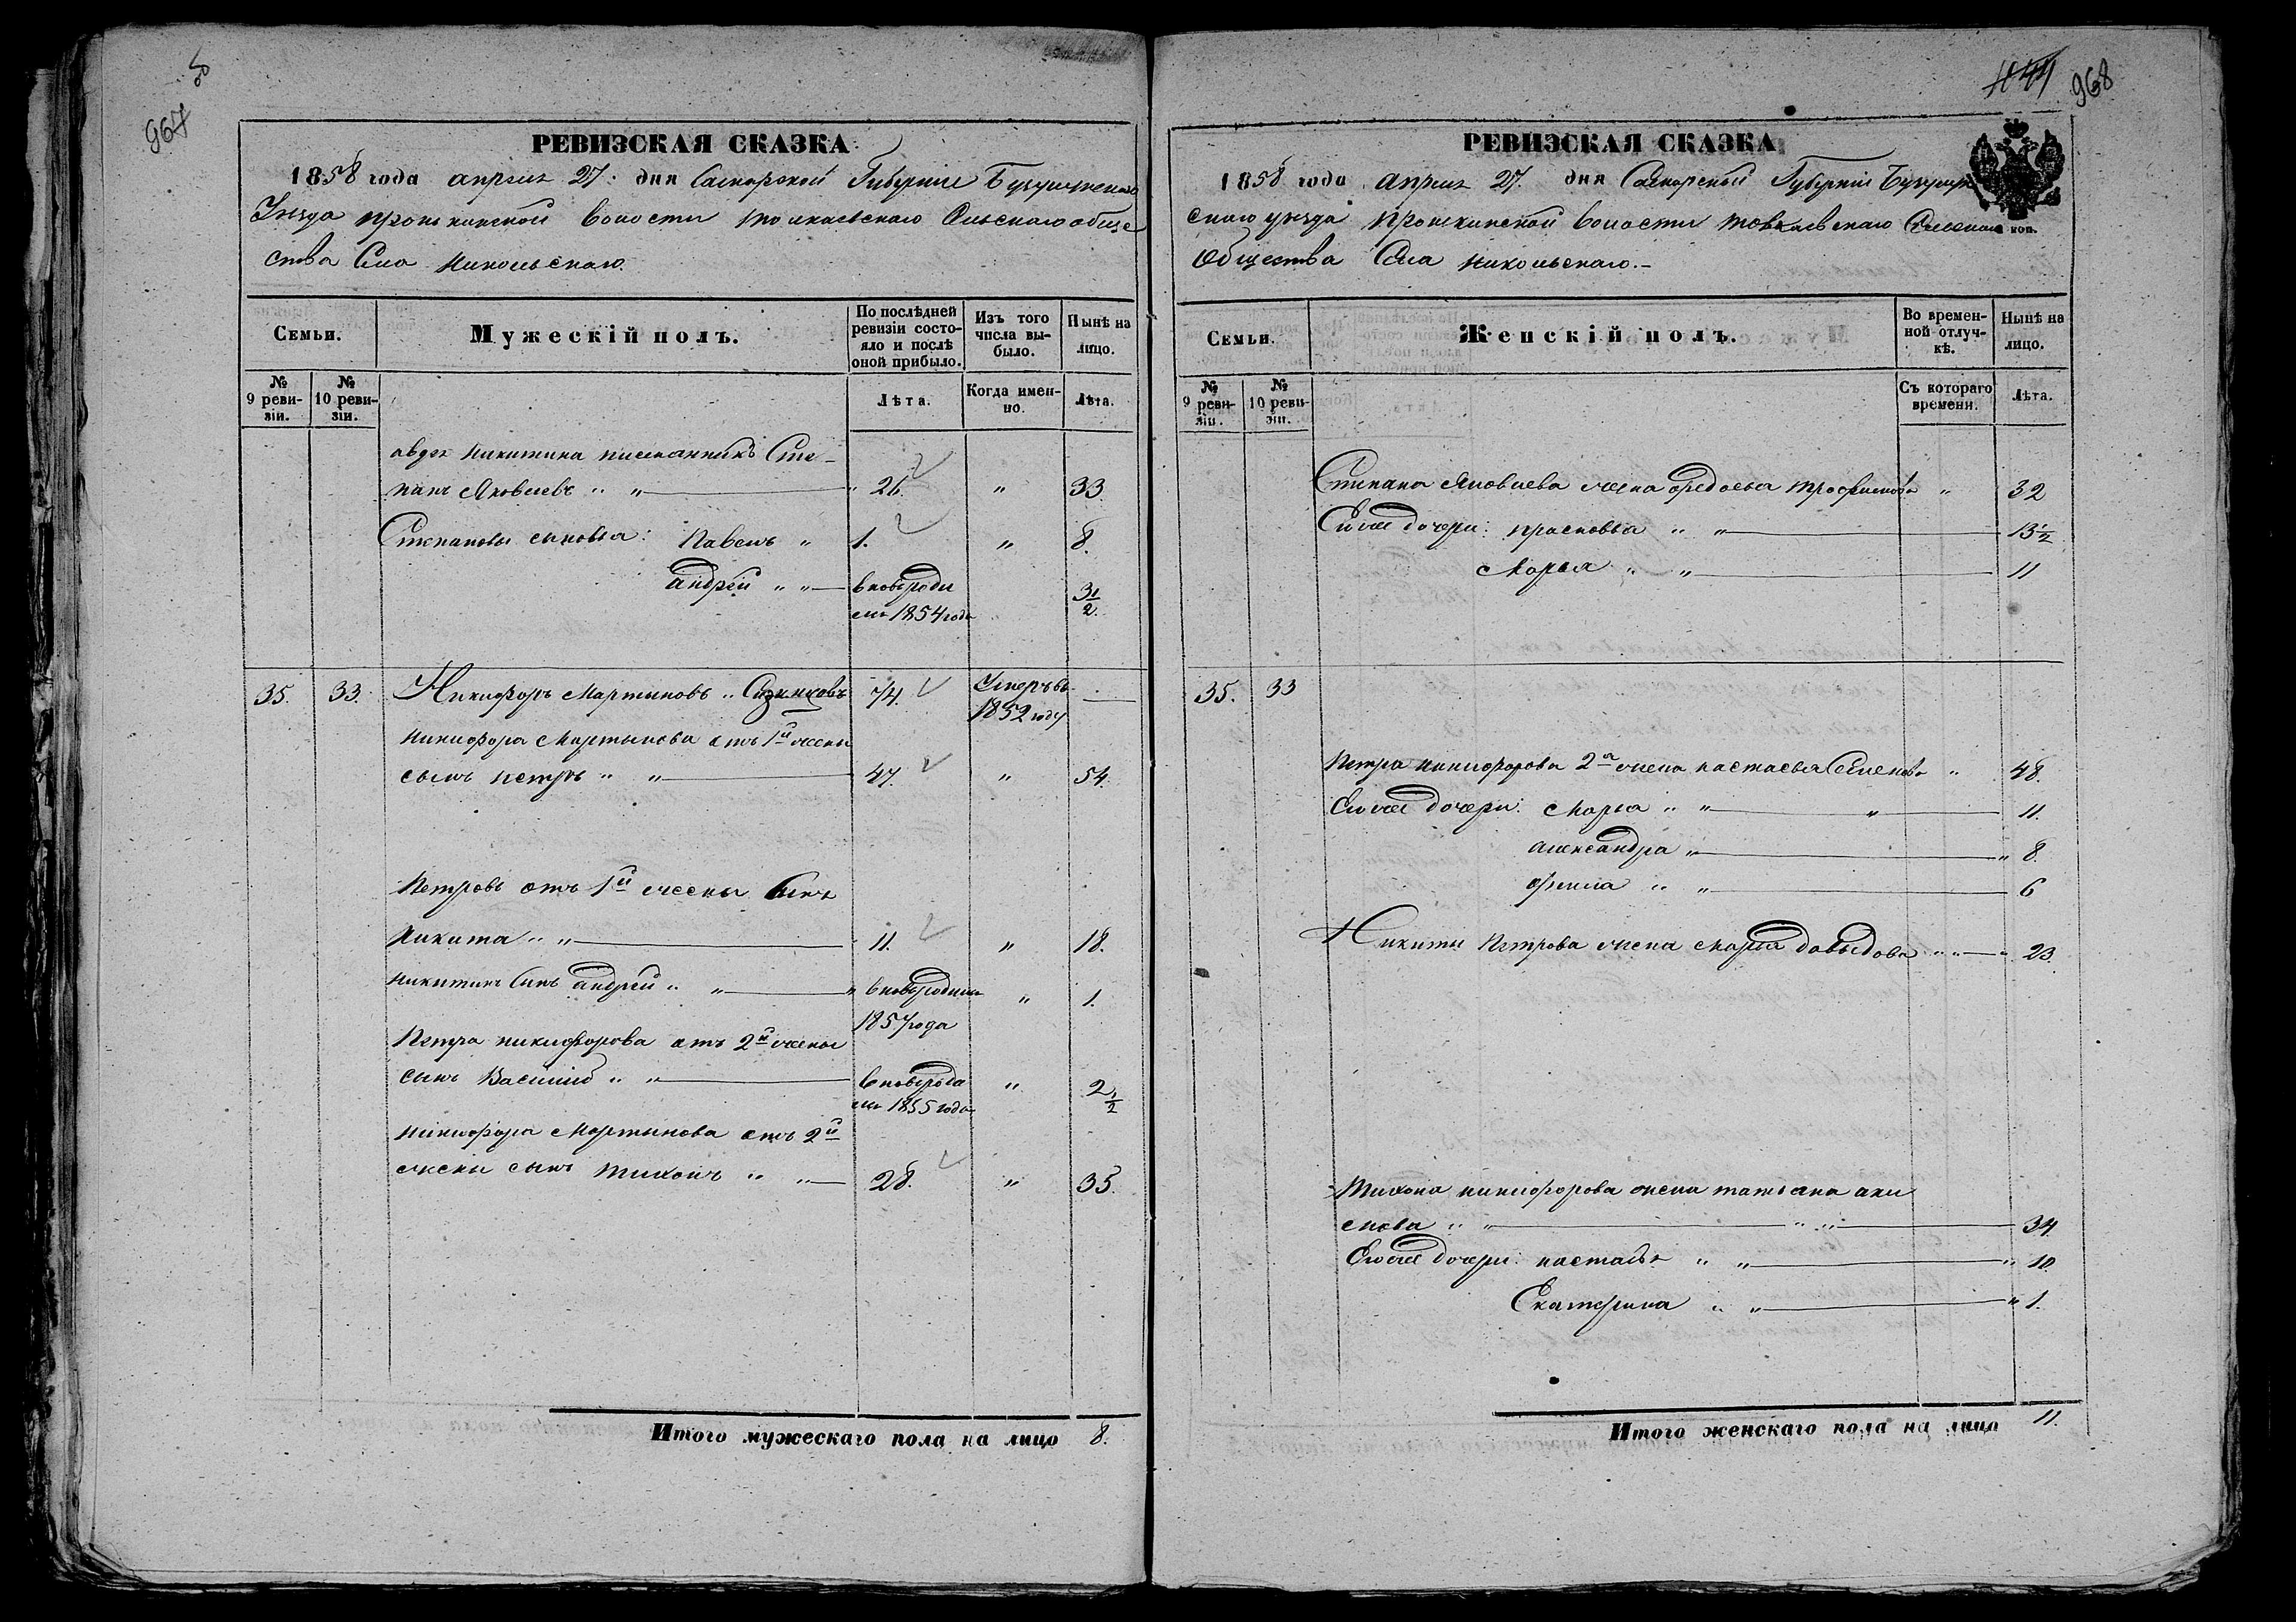 967
РЕВИЗСКАЯ СКАЗКА
1858 года апреля 27. дня Самарской Губернiи Бугурусланскаго
Уезда пронькинской волости толкаевскаго Сельскаго обще
ства Села никольскаго.
Семьи.
Мужескiй полъ.
По послѣдней ревизiи состояло и послѣ оной прибыло.
Изъ того числа выбыло.
Нынѣ на лицо.
№ 9 ревизiи.
№ 10 ревизiи.
Лѣта.
Когда именно.
Лѣта.
авдея никитина племянникъ Сте-
панъ Яковлевъ " " 26. " 33.
Степановы сыновья: Павелъ " 1. " 8.
андрей " " вновьроди 3 1/2.
лся 1854 года
35. 33. Никифоръ Мартыновъ " 74. Умеръ въ —
1852 году
никифора Мартынова отъ 1й жены
сынъ петръ " " 47. " 54.
Петровъ отъ 1й жены сынъ
Никита " " 11. " 18.
никитинъ сынъ андрей " " " вновьродился " 1.
1857 года
Петра никифорова отъ 2й жены
сынъ Василий " " вновьроди " 2 1/2
лся 1855 года
никифора Мартынова отъ 2й
жены сынъ тихонъ " " 28. " 35.
Итого мужескаго пола на лицо 8.
968
РЕВИЗСКАЯ СКАЗКА
1858 года апреля 27. дня Самарской Губернiи Бугурус
скаго уезда пронькинской волости толкаевскаго Сельскаго коп.
Общества Села никольскаго.-
Семьи.
Женскiй полъ.
Во временной отлучкѣ.
Нынѣ на лицо.
№ 9 ревизiи.
№ 10 ревизiи.
Съ котораго времени.
Лѣта.
Степана Яковлева жена федосья трофимова " 32
Ево же дочери: прасковья " " 13 1/2
Марья " " 11
35. 33
Петра никифорова 2я жена настасья Семенова " 48.
Ево же дочери: Марья " " " 11.
александра " " 8.
" " 6
Никиты Петрова жена Марья давыдова " " " 23.
Тихона никифорова жена татьяна аки
мова " " " " 34
Ево же дочери: настасья " " " 10.
Екатерина " " " 1.
Итого женскаго пола на лицо 11.